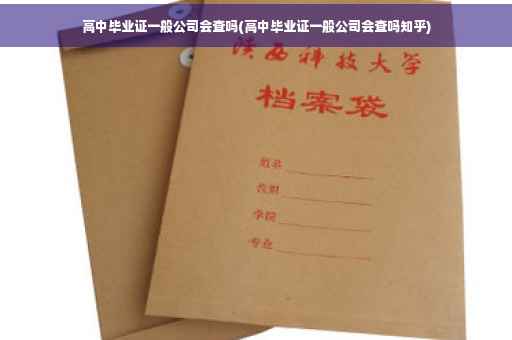 高中毕业证一般公司会查吗(高中毕业证一般公司会查吗知乎)
陕西科技大学
档案袋
姓名
类别
学院
专业